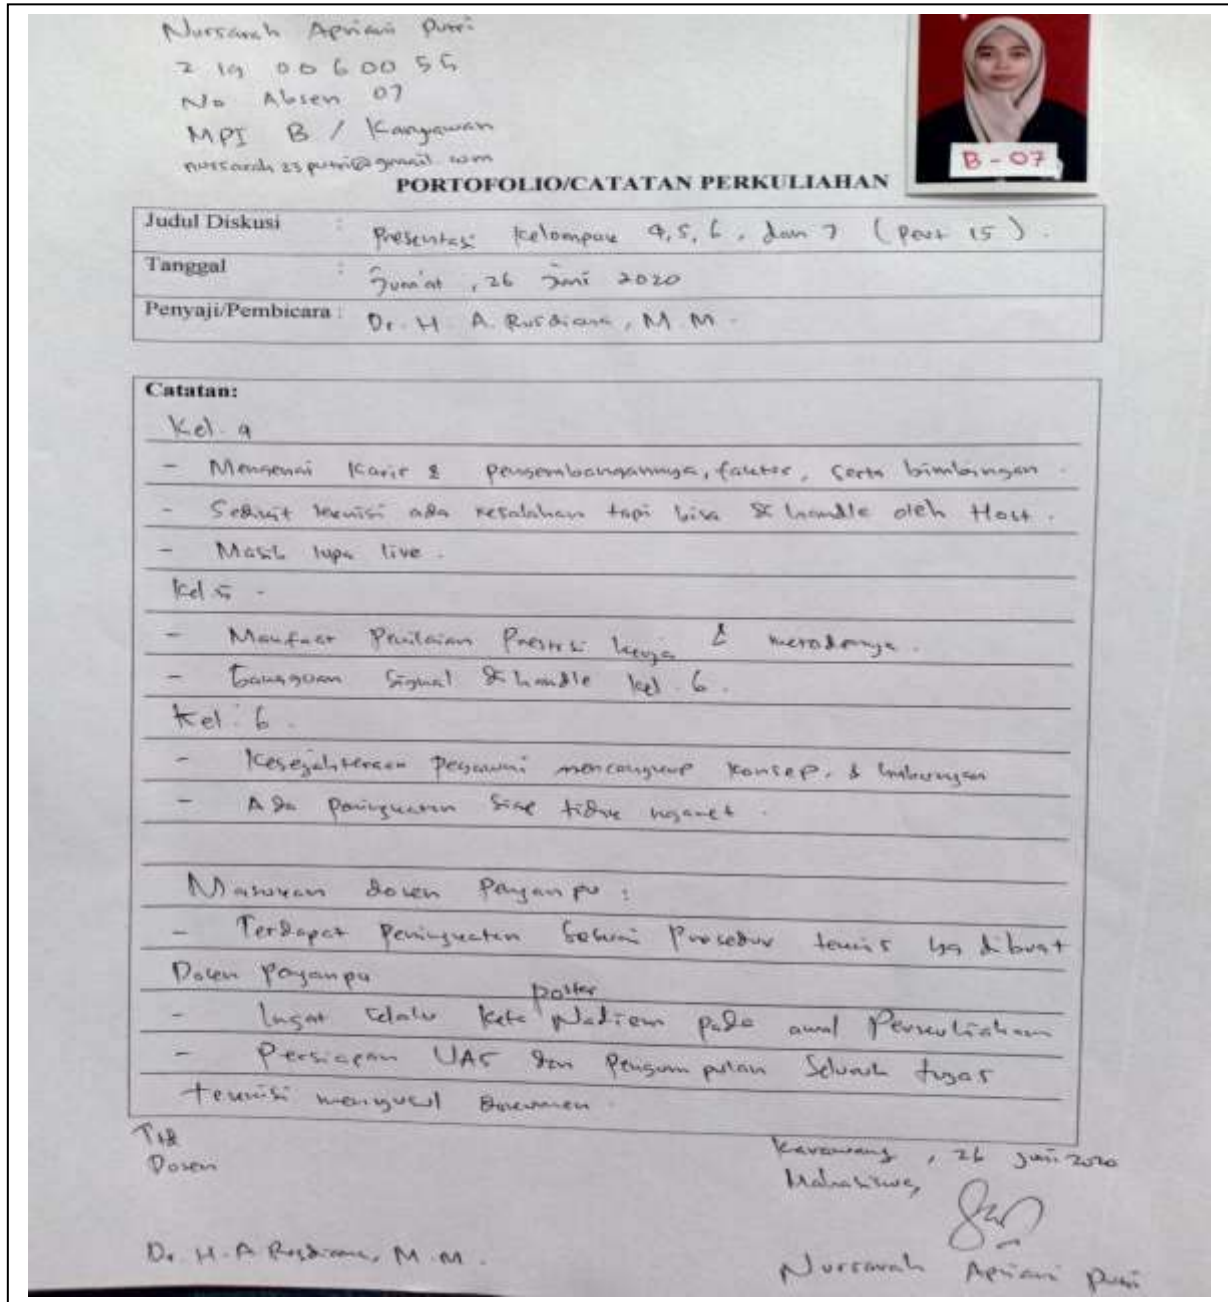 Nursarah Apriani Putri
2 19 00 6 00 55
No Absen 07
MPI B / Karyawan
nursarah23putri@gmail.com
B - 07
PORTOFOLIO/CATATAN PERKULIAHAN
Judul Diskusi : Presentasi Kelompok 4, 5, 6, dan 7 (Pert 15).
Tanggal : Jum'at, 26 Juni 2020
Penyaji/Pembicara : Dr. H. A. Rusdiana, M.M.
Catatan:
Kel. 4
- Mengenai Karir & pengembangannya, faktor, serta bimbingan.
- Sedikit teknisi ada kesalahan tapi bisa di handle oleh Host.
- Masih lupa live.
Kel 5.
- Manfaat Penilaian Prestasi kerja & metodenya.
- Gangguan Signal di handle kel. 6.
Kel. 6.
- Kesejahteraan Pegawai mencangkup Konsep, &
- Ada peningkatan tidak
Masukan dosen Pengampu :
- Terdapat Peningkatan Sesuai Prosedur teknis yg dibuat
Dosen Pengampu
poster
- Ingat selalu kata Nadiem pada awal Perkuliahan
- Persiapan UAS dan Pengumpulan Seluruh tugas
teknisi menyusul Dokumen.
Ttd
Dosen
Karawang, 26 Juni 2020
Mahasiswa,
Dr. H. A Rusdiana, M.M.
Nursarah Apriani Putri